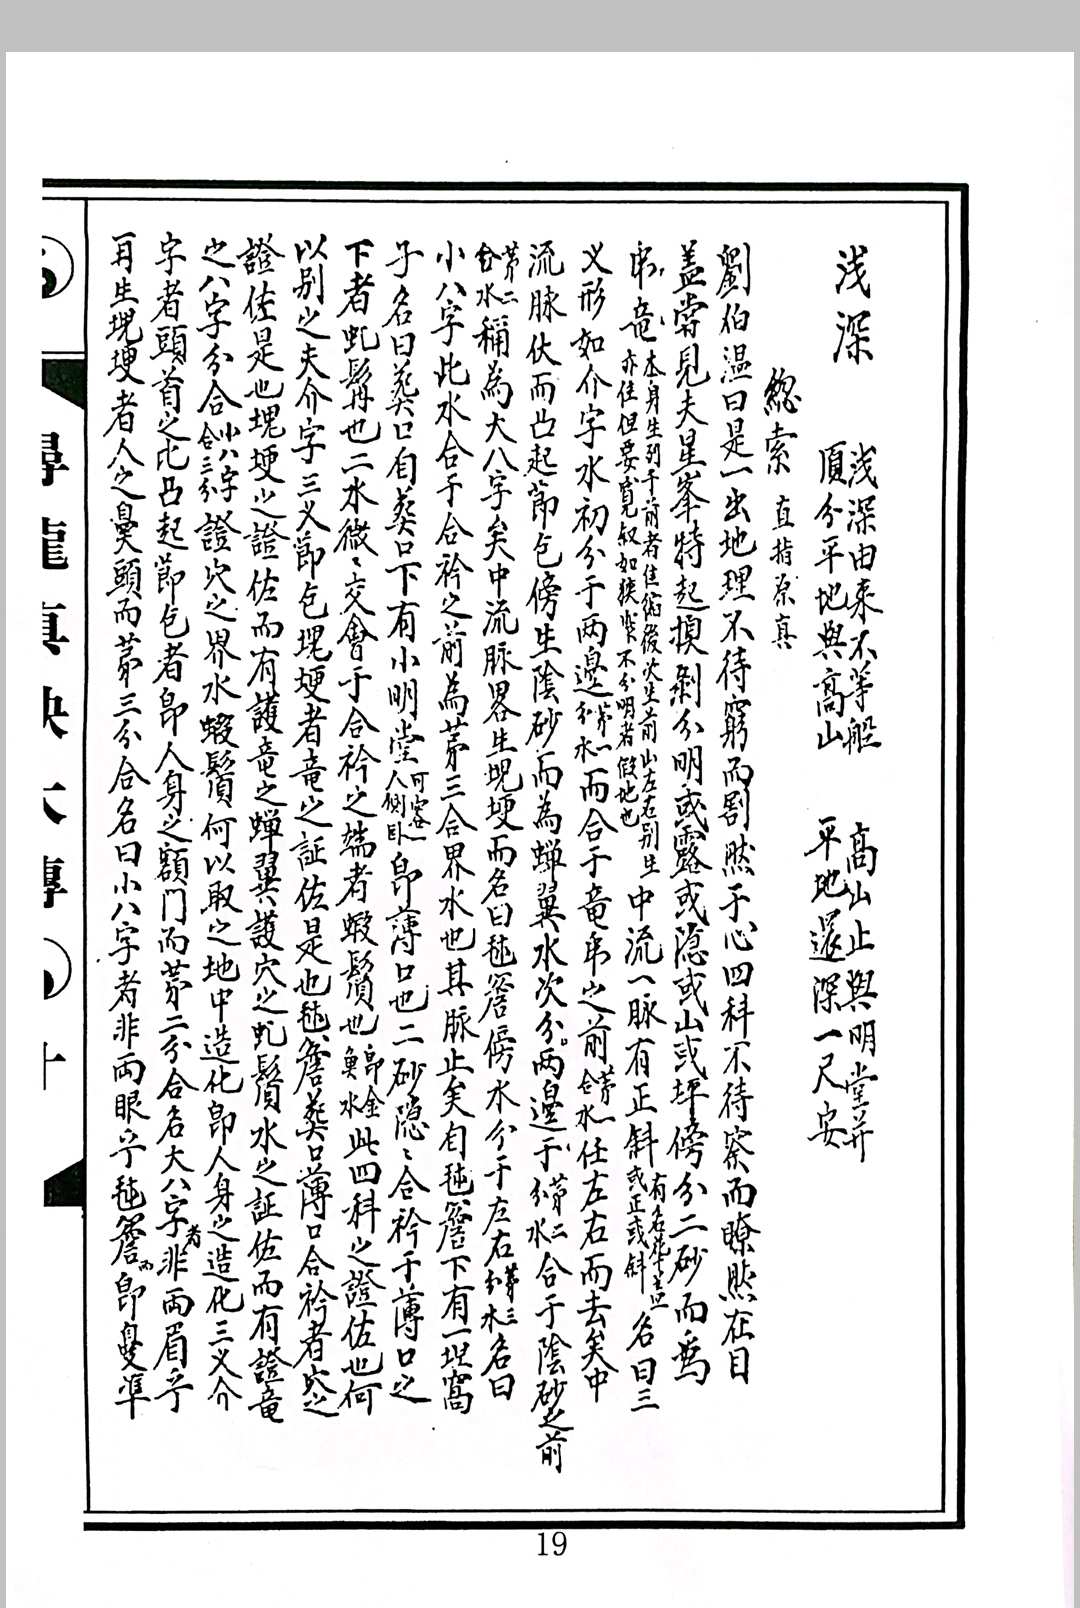 浅深
浅深由來不等般 高山止與明堂并
頂分平地與高山 平地還深一尺安
總索 直指原真
劉伯温曰是一出地理不待窮而割然于心四科不待察而瞭然在目
盖嘗見夫星峯特起摸剝分明或露或隐或山或坪傍分二砂而為
帍竜 本身生到于前者佳縮後次生前山左右别生
亦佳但要 如狭 不分明者假地也
中流一脉有正斜 或正或斜 名曰三
义形如介字水初分于两邊 第一分水 而合于竜帍之前 第一合水 任左右而去矣中
流脉伏而凸起節包傍生陰砂而為蝉翼水次分两邊于 第二分水 合于陰砂之前
第二合水 稱為大八字矣中流脉畧生塊埂而名曰毬簷傍水分于左右 第三分水 名曰
小八字此水合于合衿之前為第三合界水也其脈止矣自毬簷下有一坦窩
子名曰葬口自葬口下有小明堂 可容一人側卧 即薄口也二砂隐隐合衿于薄口之
下者虬髯也二水微微交會于合衿之端者蝦鬚也 即金魚水 此四科之證佐也何
以别之夫介字三义節包塊埂者竜之証佐是也毬簷葬口薄口合衿者穴之
證佐是也塊埂之證佐而有護竜之蝉翼護穴之虬鬚水之証佐而有證竜
之八字分合 小八字合三分 證穴之界水蝦鬚何以取之地中造化即人身之造化三义介
字者頭首之比凸起節包者即人身之額門而第二分合名大八字者非两眉乎
再生塊埂者人之鼻頭而第三分合名曰小八字者非两眼乎毬簷而即鼻準
尋龍真訣大傳
十
19